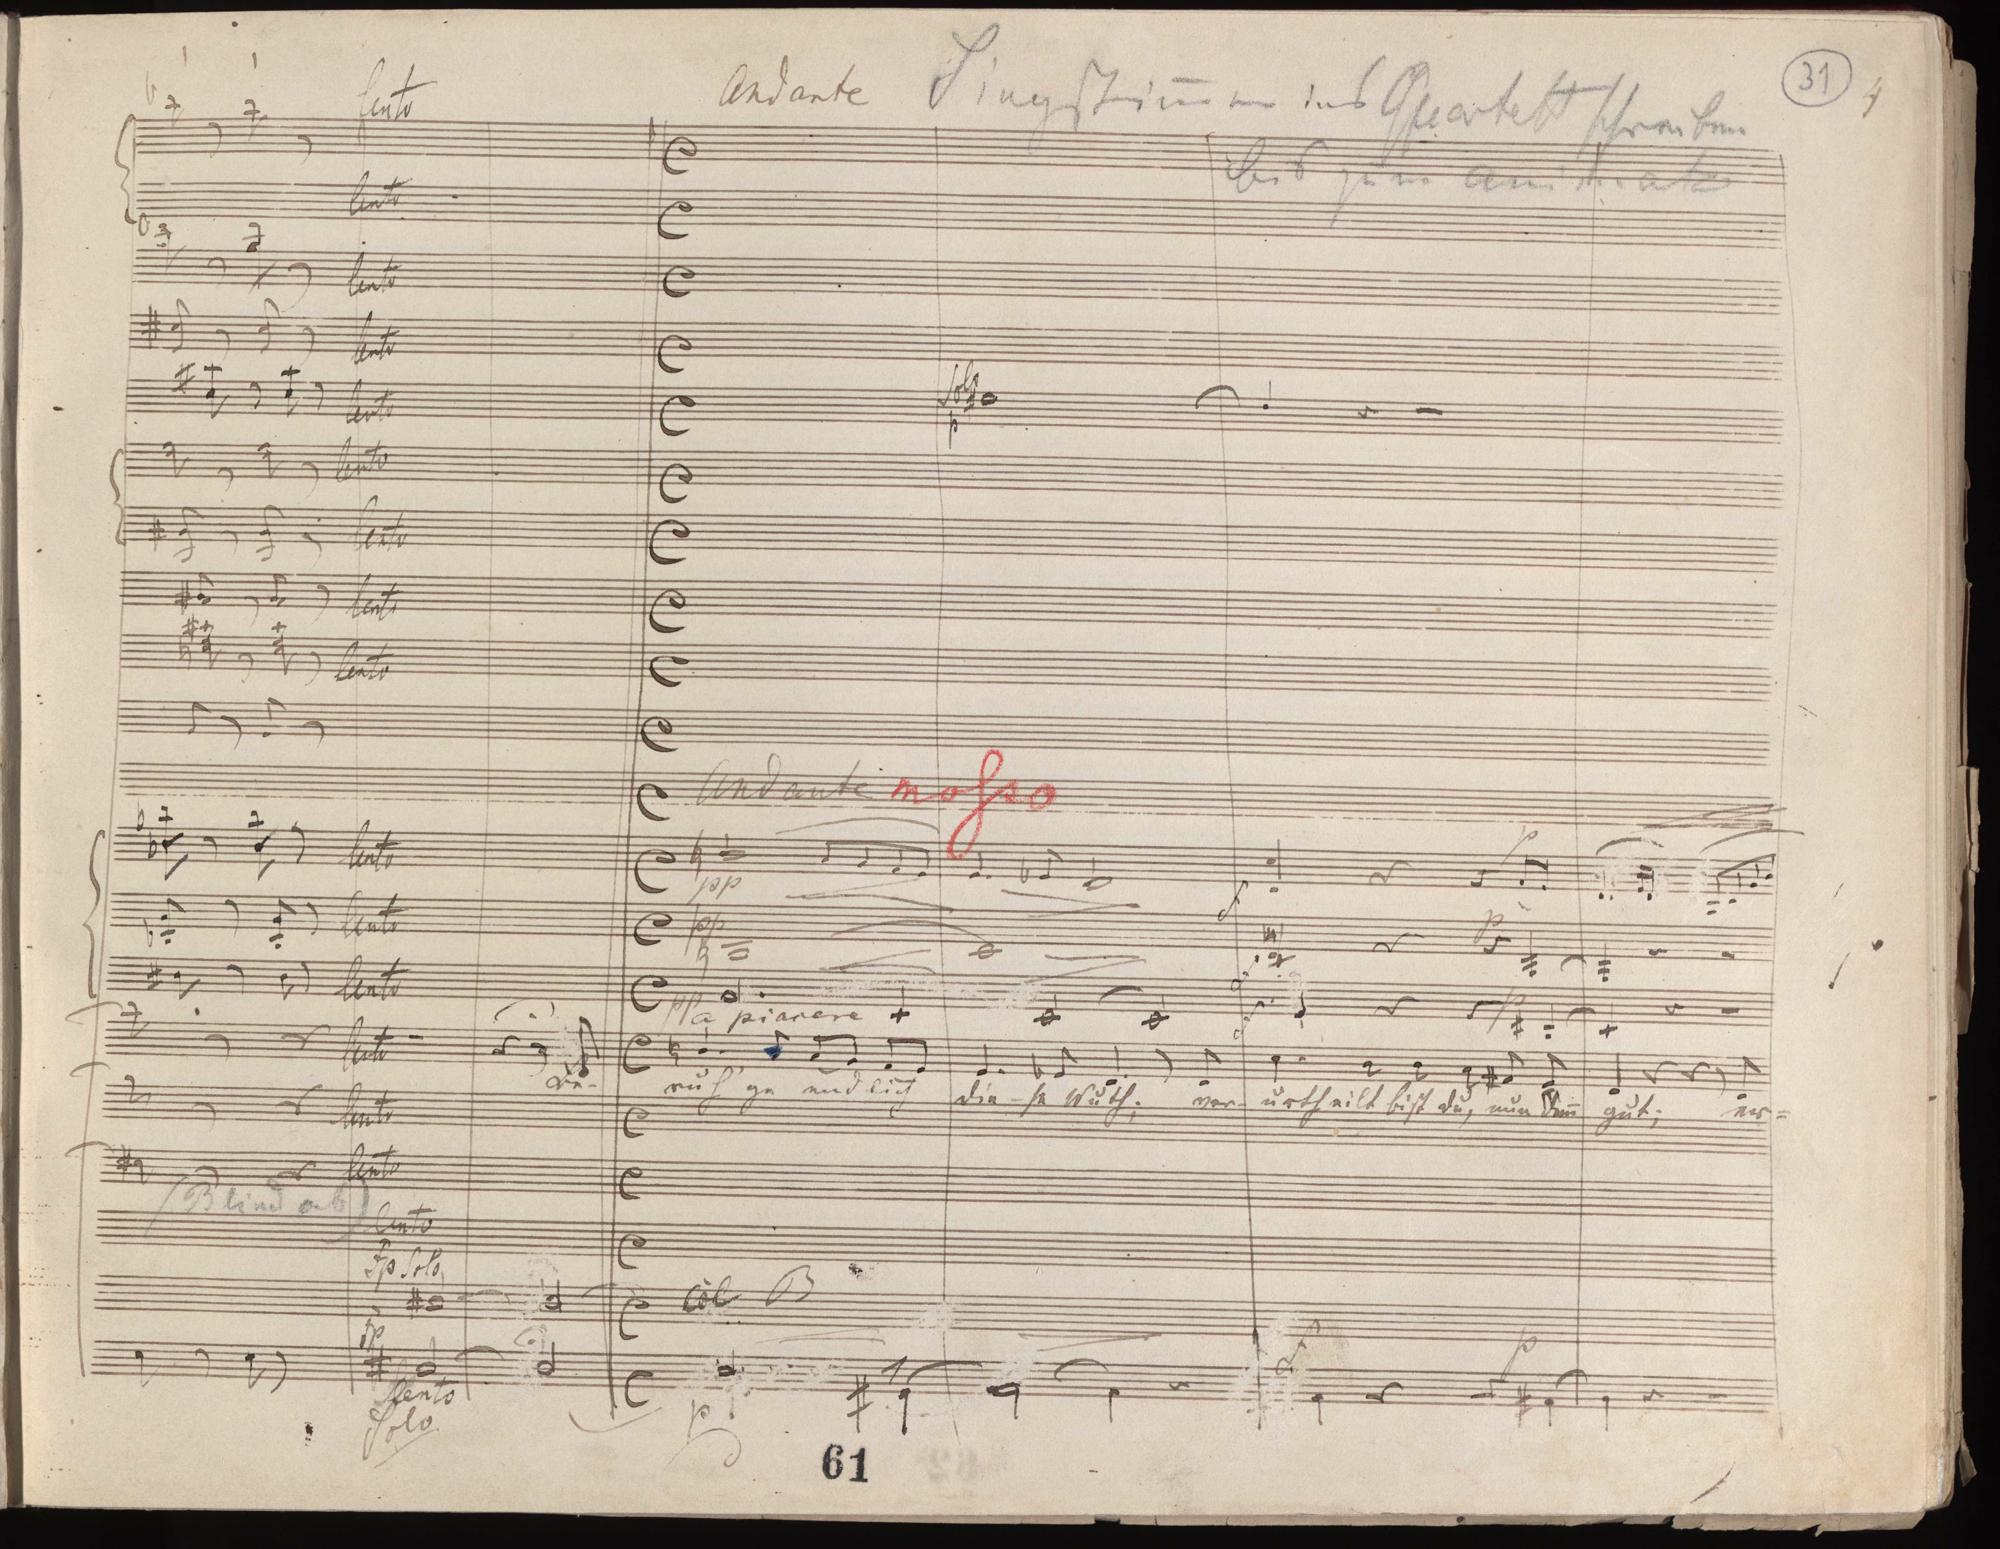 31
4
Andante Singstimmen ins Quartett schreiben
bis zum animato
lento
lento
lento
lento
lento
Solo
p
lento
lento
lento
lento
Andante mosso
lento
pp
f
p
lento
pp
p
lento
pp
p
a piacere
lento
be-
ruh' ge endlich die-se Wuth; ver-urtheilt bist du, nun denn gut; er=
lento
lento
(Blind ab)
lento
fp Solo
col B
fp
f
p
lento
Solo
p
61